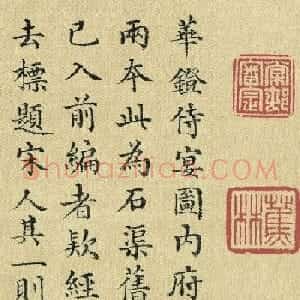 華鐙侍宴圖內府
兩本此為石渠舊
已入前編者欵經
去標題宋人其一則
蕉林